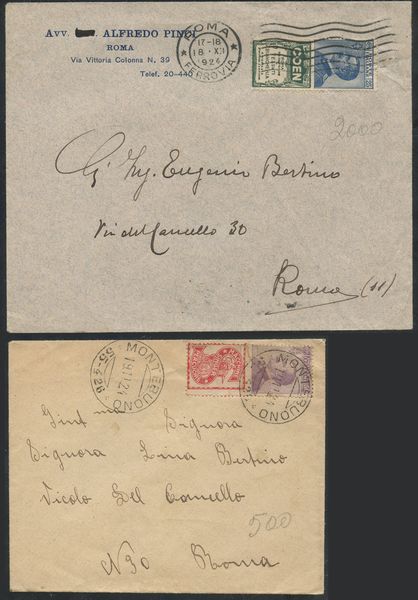 Avv. ALFREDO PINCI
ROMA
Via Vittoria Colonna N. 39
Telef. 20-440
ROMA
17-18
18 · XII
1924
FERROVIA
COEN
2000
G. Ing. Eugenio Bertino
Via del Cancello 30
Roma (11)
MONTEBUONO
MONTEBUONO
Gint ma Signora
Signora Lina Bertino
Vicolo Del Cancello
N 30 Roma
500